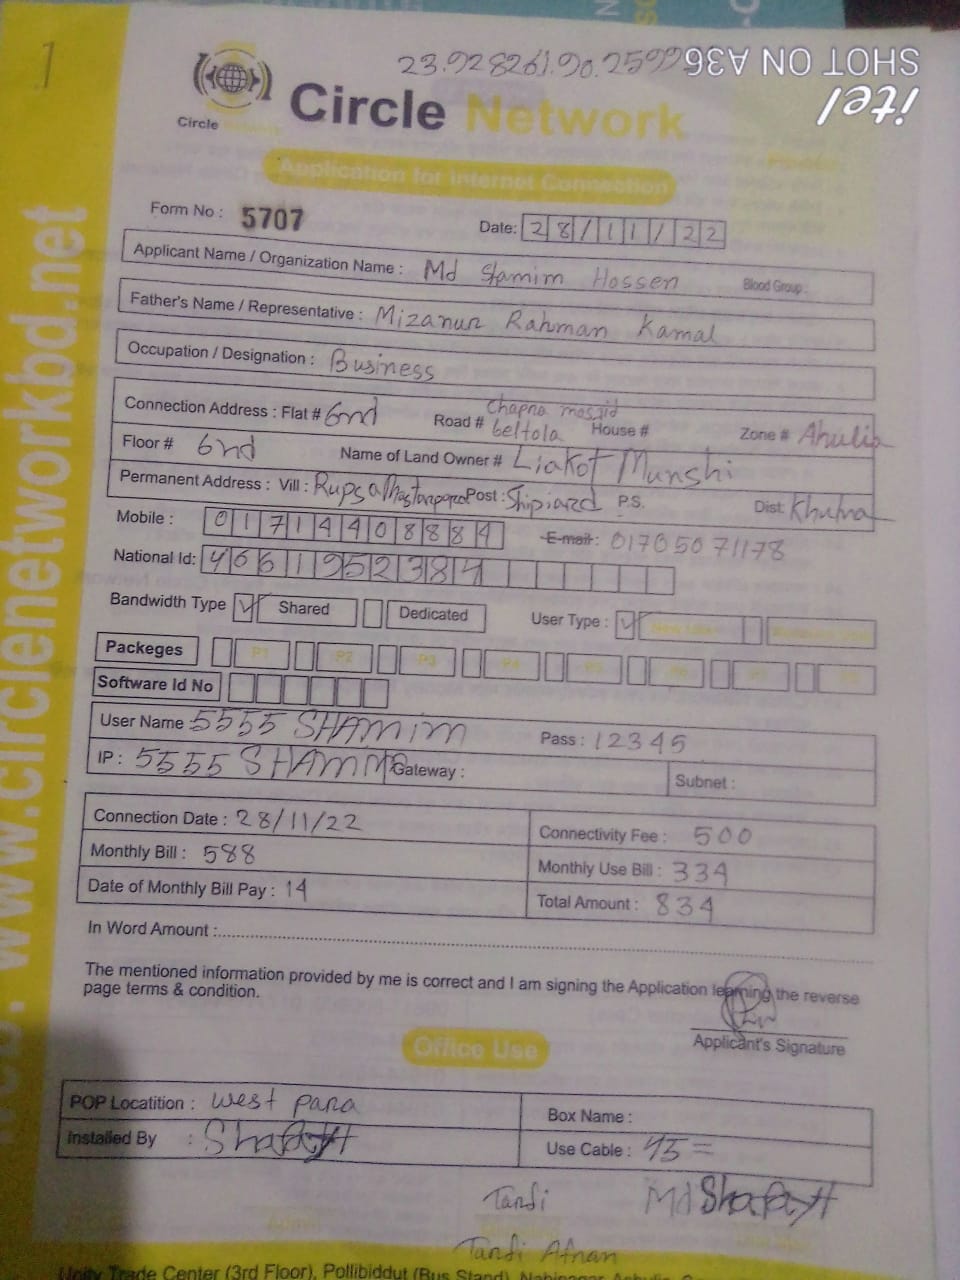 1
23.928261.90.2599
SHOT ON A36
itel
Circle
Circle Network
Application for Internet Connection
Form No : 5707
Date: 28/11/22
Applicant Name / Organization Name : Md Shamim Hossen Blood Group :
Father's Name / Representative : Mizanur Rahman Kamal
Occupation / Designation : Business
Connection Address : Flat # 6nd Road # Chapra mosjid beltola House # Zone # Ahulia
Floor # 6nd Name of Land Owner # Liakot Munshi
Permanent Address : Vill : Rupsa Post : Shipiard P.S. Dist: Khulna
Mobile : 01714408884 E-mail : 01705071178
National Id: 4661952384
Bandwidth Type Shared Dedicated User Type :
Packeges P1 P2 P3 P4 P5 P6 P7
Software Id No
User Name 5555 SHAMIM Pass : 12345
IP : 5555 SHAMIM Gateway : Subnet :
Connection Date : 28/11/22 Connectivity Fee : 500
Monthly Bill : 588 Monthly Use Bill : 334
Date of Monthly Bill Pay : 14 Total Amount : 834
In Word Amount :
The mentioned information provided by me is correct and I am signing the Application learning the reverse
page terms & condition.
Applicant's Signature
Office Use
POP Locatition : West Para Box Name :
Installed By : Shafayt Use Cable : 45=
Tandi Md Shafayt
Tandi Afnan
Unity Trade Center (3rd Floor), Pollibiddut (Bus Stand), Nabinagar
www.circlenetworkbd.net